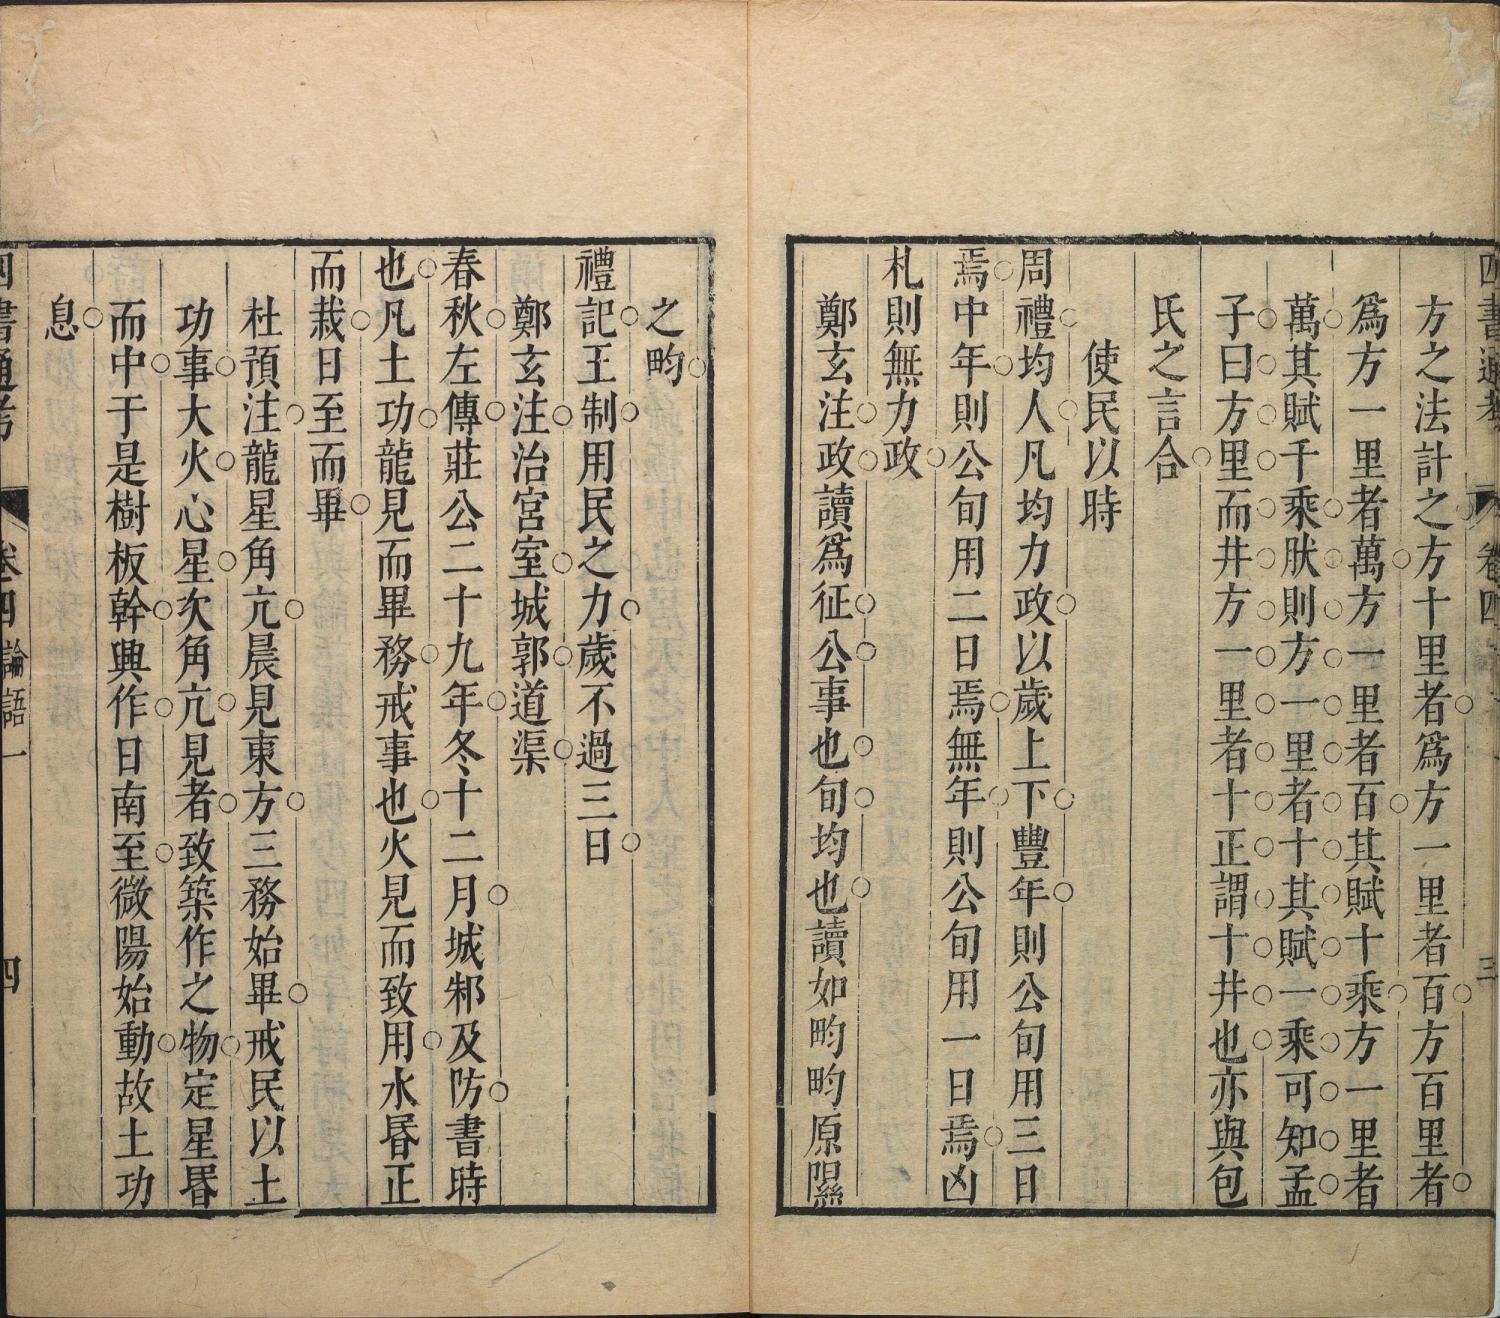 四書通考 卷四 三
方之法計之方十里者爲方一里者百方百里者
爲方一里者萬方一里者百其賦十乘方一里者
萬其賦千乘然則方一里者十其賦一乘可知孟
子曰方里而井方一里者十正謂十井也亦與包
氏之言合
使民以時
周禮均人凡均力政以歲上下豐年則公旬用三日
焉中年則公旬用二日焉無年則公旬用一日焉凶
札則無力政
鄭玄注政讀爲征公事也旬均也讀如畇畇原隰
之畇
禮記王制用民之力歲不過三日
鄭玄注治宮室城郭道渠
春秋左傳莊公二十九年冬十二月城邾及防書時
也凡土功龍見而畢務戒事也火見而致用水昏正
而栽日至而畢
杜預注龍星角亢晨見東方三務始畢戒民以土
功事大火心星次角亢見者致築作之物定星昏
而中于是樹板幹興作日南至微陽始動故土功
息
四書通考 卷四 論語一 四